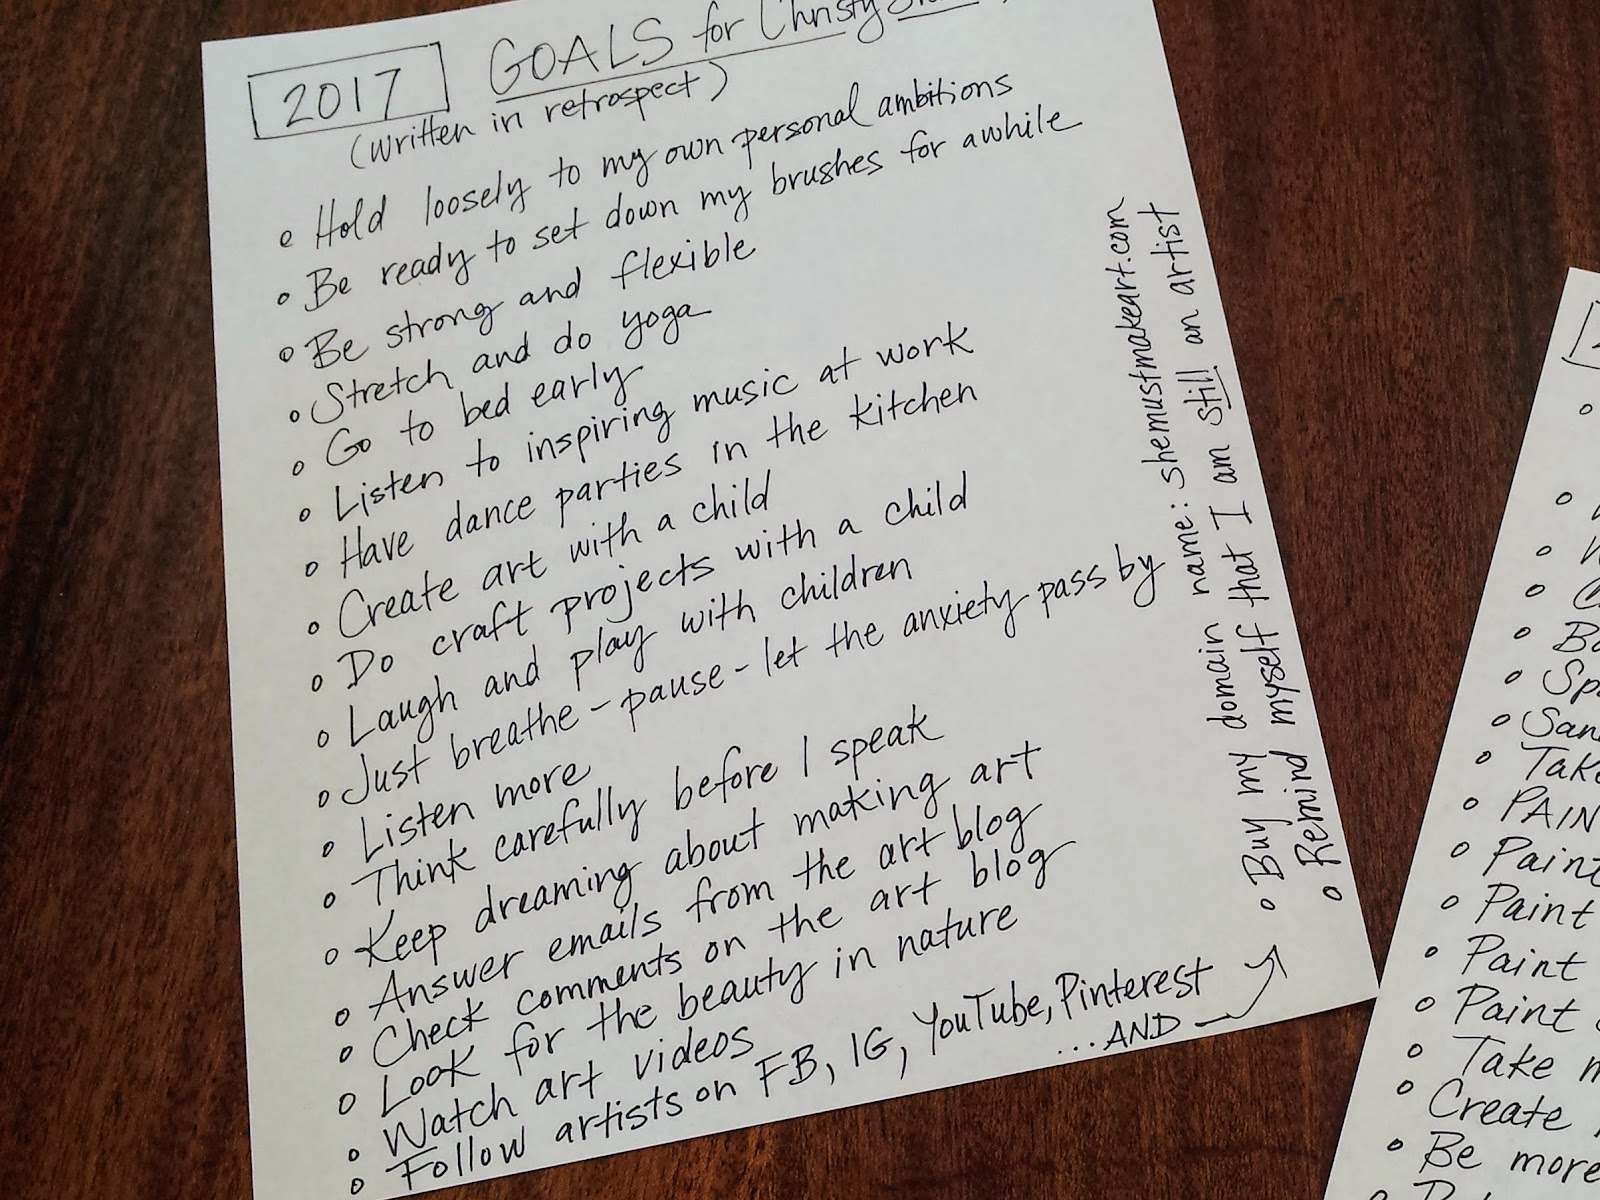 2017 GOALS for Christy
(written in retrospect)
• Hold loosely to my own personal ambitions
• Be ready to set down my brushes for awhile
• Be strong and flexible
• Stretch and do yoga
• Go to bed early
• Listen to inspiring music at work
• Have dance parties in the kitchen
• Create art with a child
• Do craft projects with a child
• Laugh and play with children
• Just breathe - pause - let the anxiety pass by
• Listen more
• Think carefully before I speak
• Keep dreaming about making art
• Answer emails from the art blog
• Check comments on the art blog
• Look for the beauty in nature
• Watch art videos
• Follow artists on FB, IG, YouTube, Pinterest
...AND →
• Buy my domain name: shemustmakeart.com
• Remind myself that I am still an artist
• Take
• PAIN
• Paint
• Paint
• Paint
• Paint
• Take
• Create
• Be more